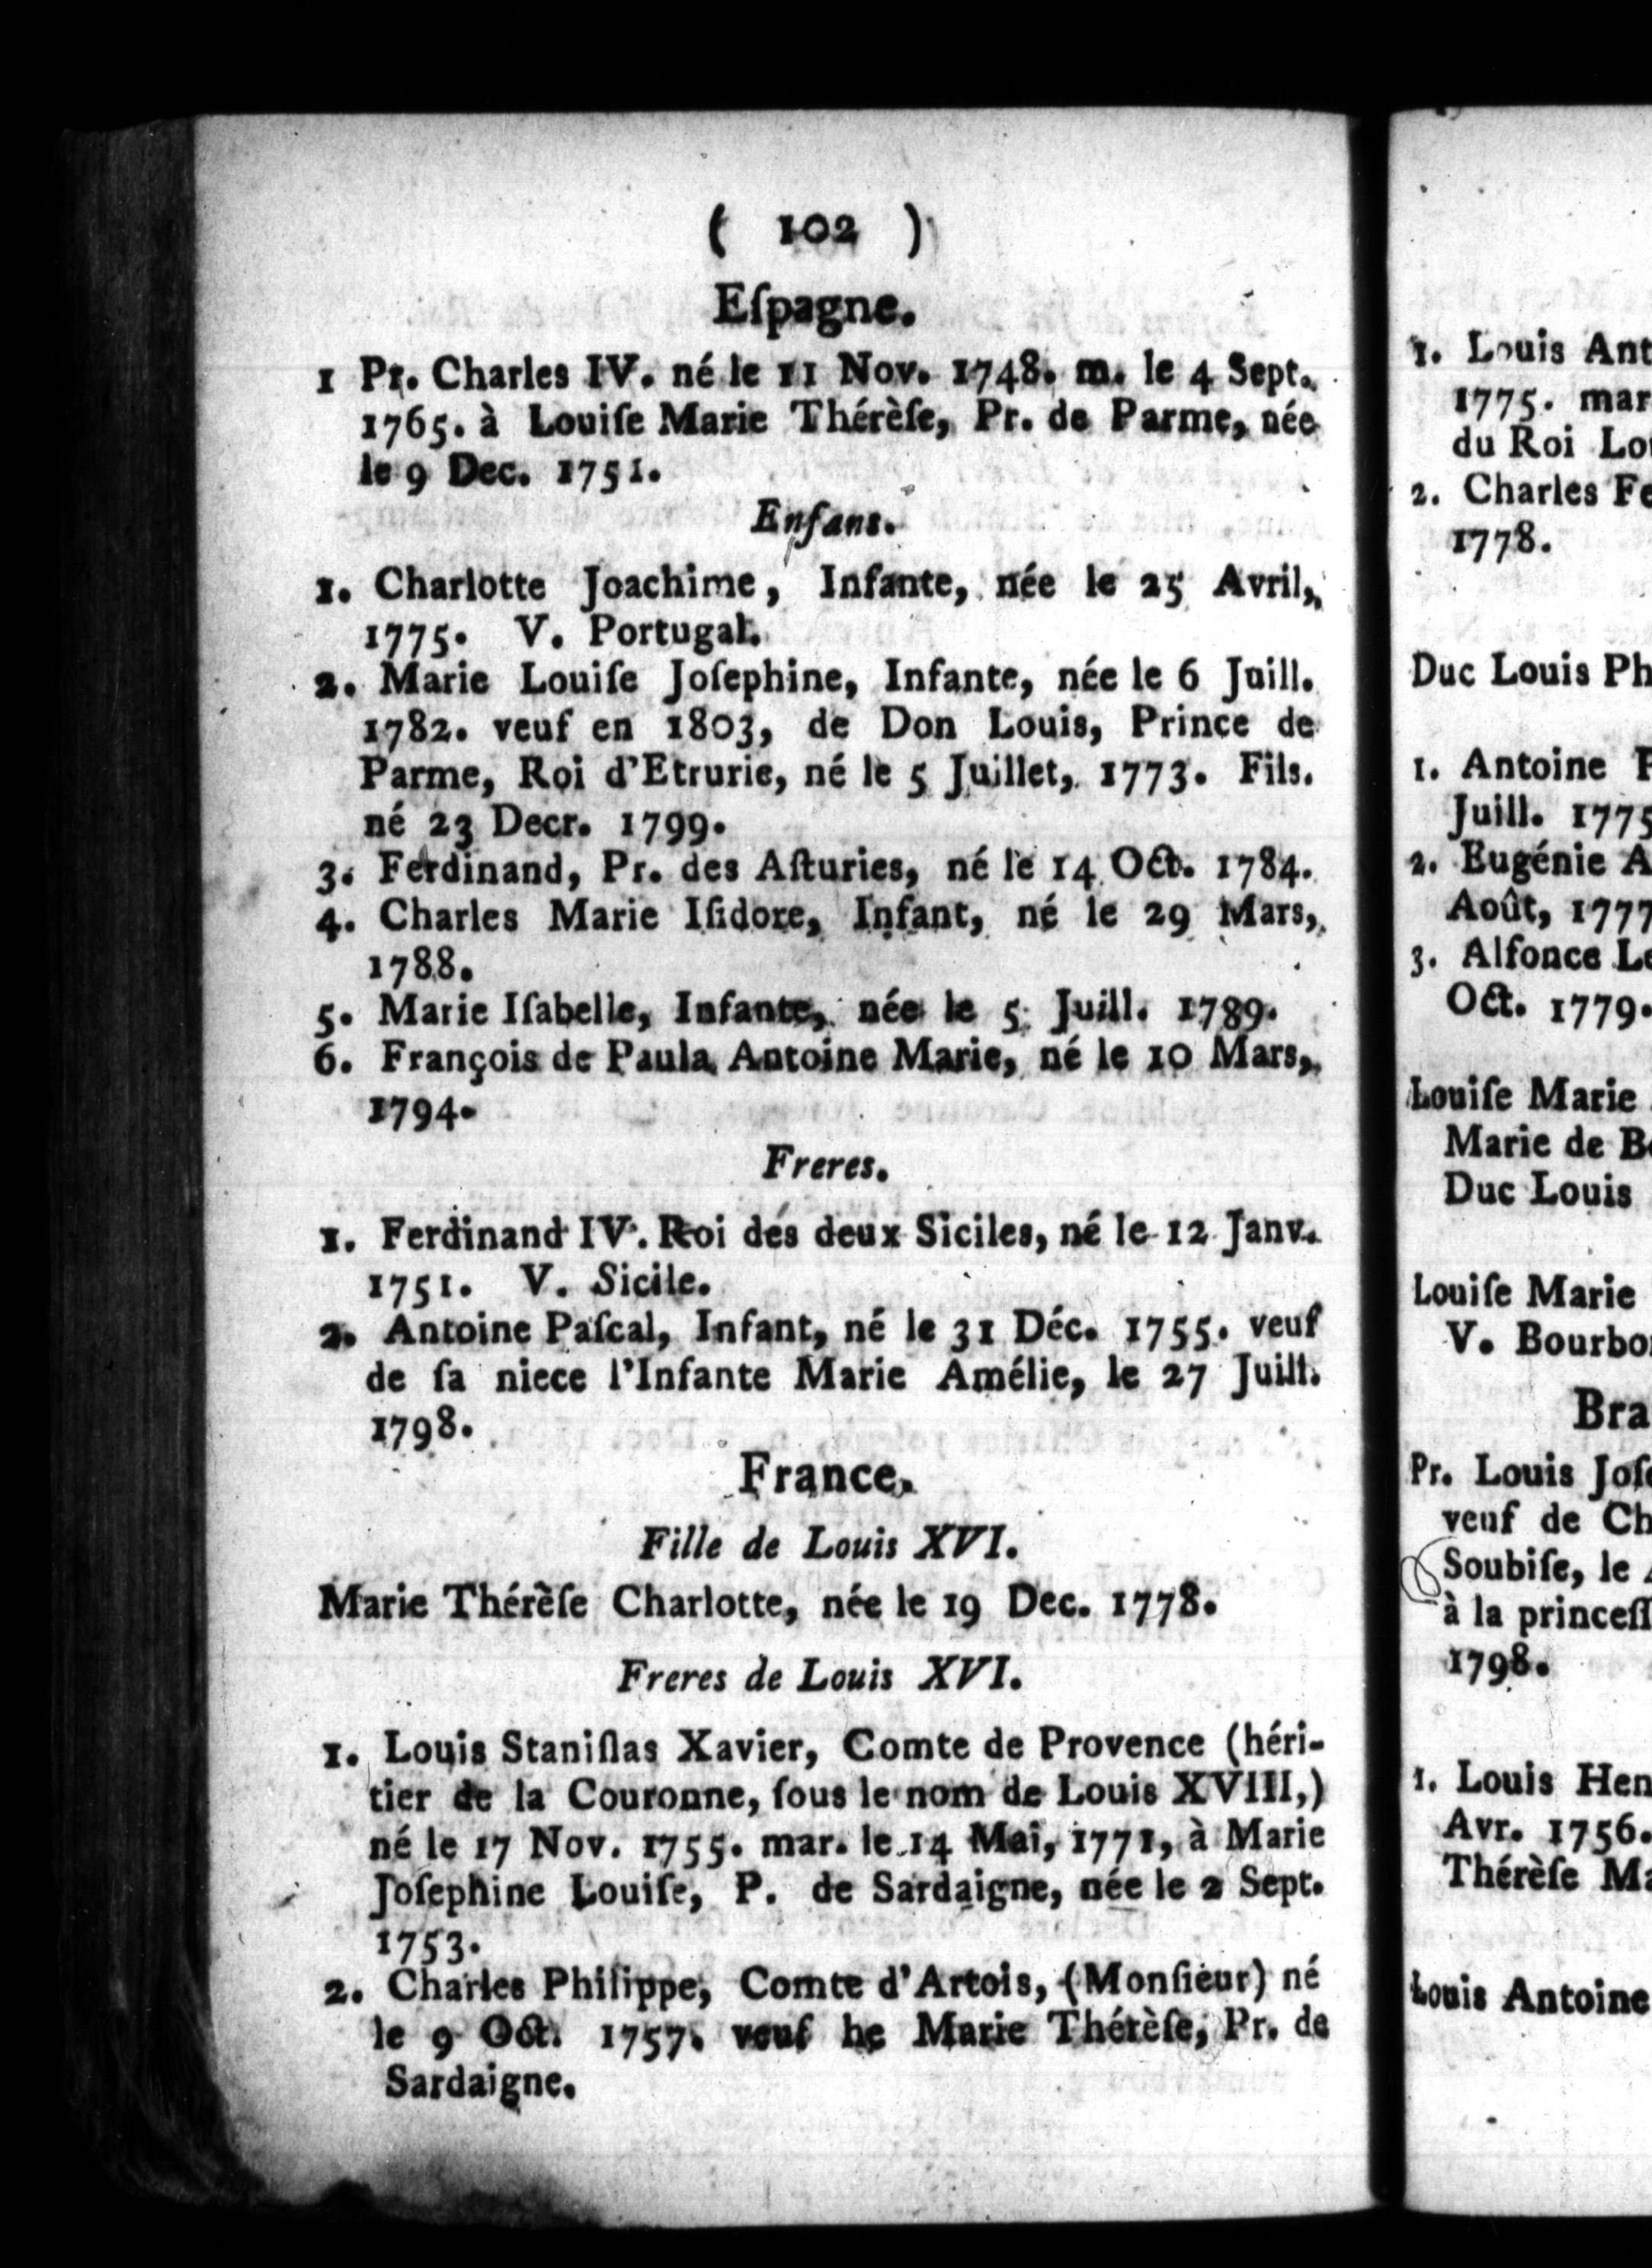 ( 102 )
Eſpagne.
1 Pr. Charles IV. né le 11 Nov. 1748. m. le 4 Sept.
1765. à Louiſe Marie Thérèſe, Pr. de Parme, née
le 9 Dec. 1751.
Enfans.
1. Charlotte Joachime, Infante, née le 25 Avril,
1775. V. Portugal.
2. Marie Louiſe Joſephine, Infante, née le 6 Juill.
1782. veuf en 1803, de Don Louis, Prince de
Parme, Roi d'Etrurie, né le 5 Juillet, 1773. Fils.
né 23 Decr. 1799.
3. Ferdinand, Pr. des Aſturies, né le 14 Oct. 1784.
4. Charles Marie Iſidore, Infant, né le 29 Mars,
1788.
5. Marie Iſabelle, Infante, née le 5 Juill. 1789.
6. François de Paula Antoine Marie, né le 10 Mars,
1794.
Freres.
1. Ferdinand IV. Roi des deux Siciles, né le 12 Janv.
1751. V. Sicile.
2. Antoine Paſcal, Infant, né le 31 Déc. 1755. veuf
de ſa niece l'Infante Marie Amélie, le 27 Juill.
1798.
France.
Fille de Louis XVI.
Marie Thérèſe Charlotte, née le 19 Dec. 1778.
Freres de Louis XVI.
1. Louis Staniſlas Xavier, Comte de Provence (héri-
tier de la Couronne, ſous le nom de Louis XVIII,)
né le 17 Nov. 1755. mar. le 14 Mai, 1771, à Marie
Joſephine Louiſe, P. de Sardaigne, née le 2 Sept.
1753.
2. Charles Philippe, Comte d'Artois, (Monſieur) né
le 9 Oct. 1757. veuf he Marie Thérèſe, Pr. de
Sardaigne.
1. Louis Ant
1775. mar
du Roi Lou
2. Charles Fe
1778.
Duc Louis Ph
1. Antoine
Juill. 1775
2. Eugénie A
Août, 1777
3. Alfonce Le
Oct. 1779.
Louiſe Marie
Marie de B
Duc Louis
Louiſe Marie
V. Bourbo
Bra
Pr. Louis Joſ
veuf de Ch
Soubiſe, le
à la princeſſ
1798.
1. Louis Hen
Avr. 1756.
Thérèſe Ma
Louis Antoine